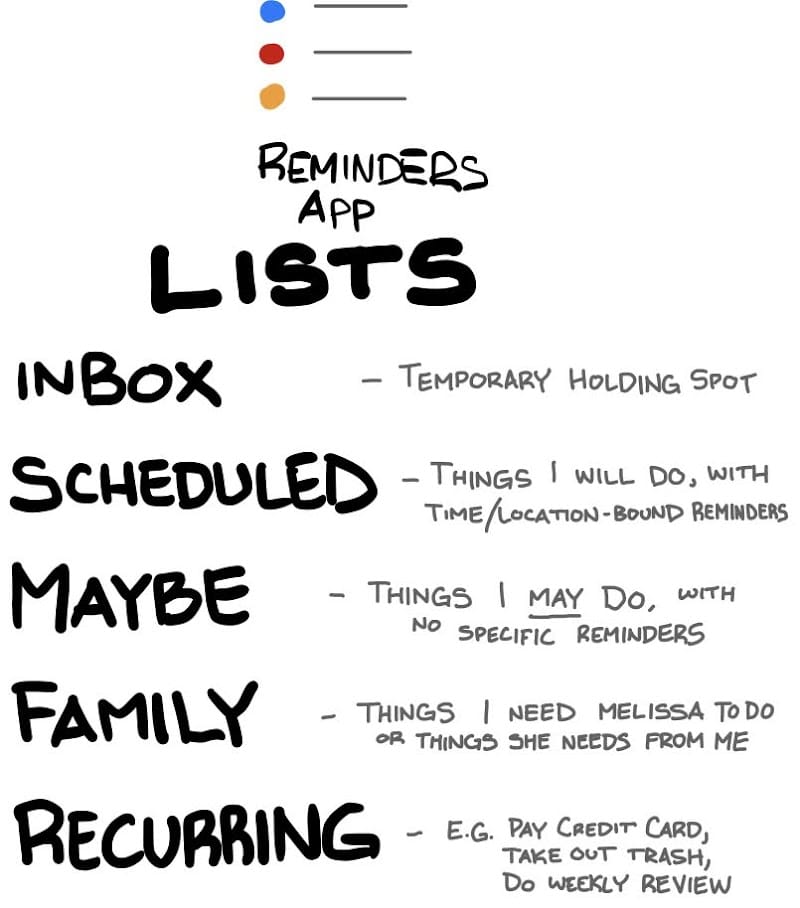 REMINDERS
APP
LISTS
INBOX - TEMPORARY HOLDING SPOT
SCHEDULED - THINGS I WILL DO, WITH
TIME/LOCATION-BOUND REMINDERS
MAYBE - THINGS I MAY DO, WITH
NO SPECIFIC REMINDERS
FAMILY - THINGS I NEED MELISSA TO DO
OR THINGS SHE NEEDS FROM ME
RECURRING - E.G. PAY CREDIT CARD,
TAKE OUT TRASH,
DO WEEKLY REVIEW